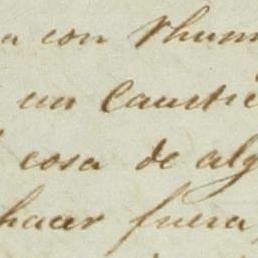 a con rhum
un Caustic
cosa de alg
hacer fuera,